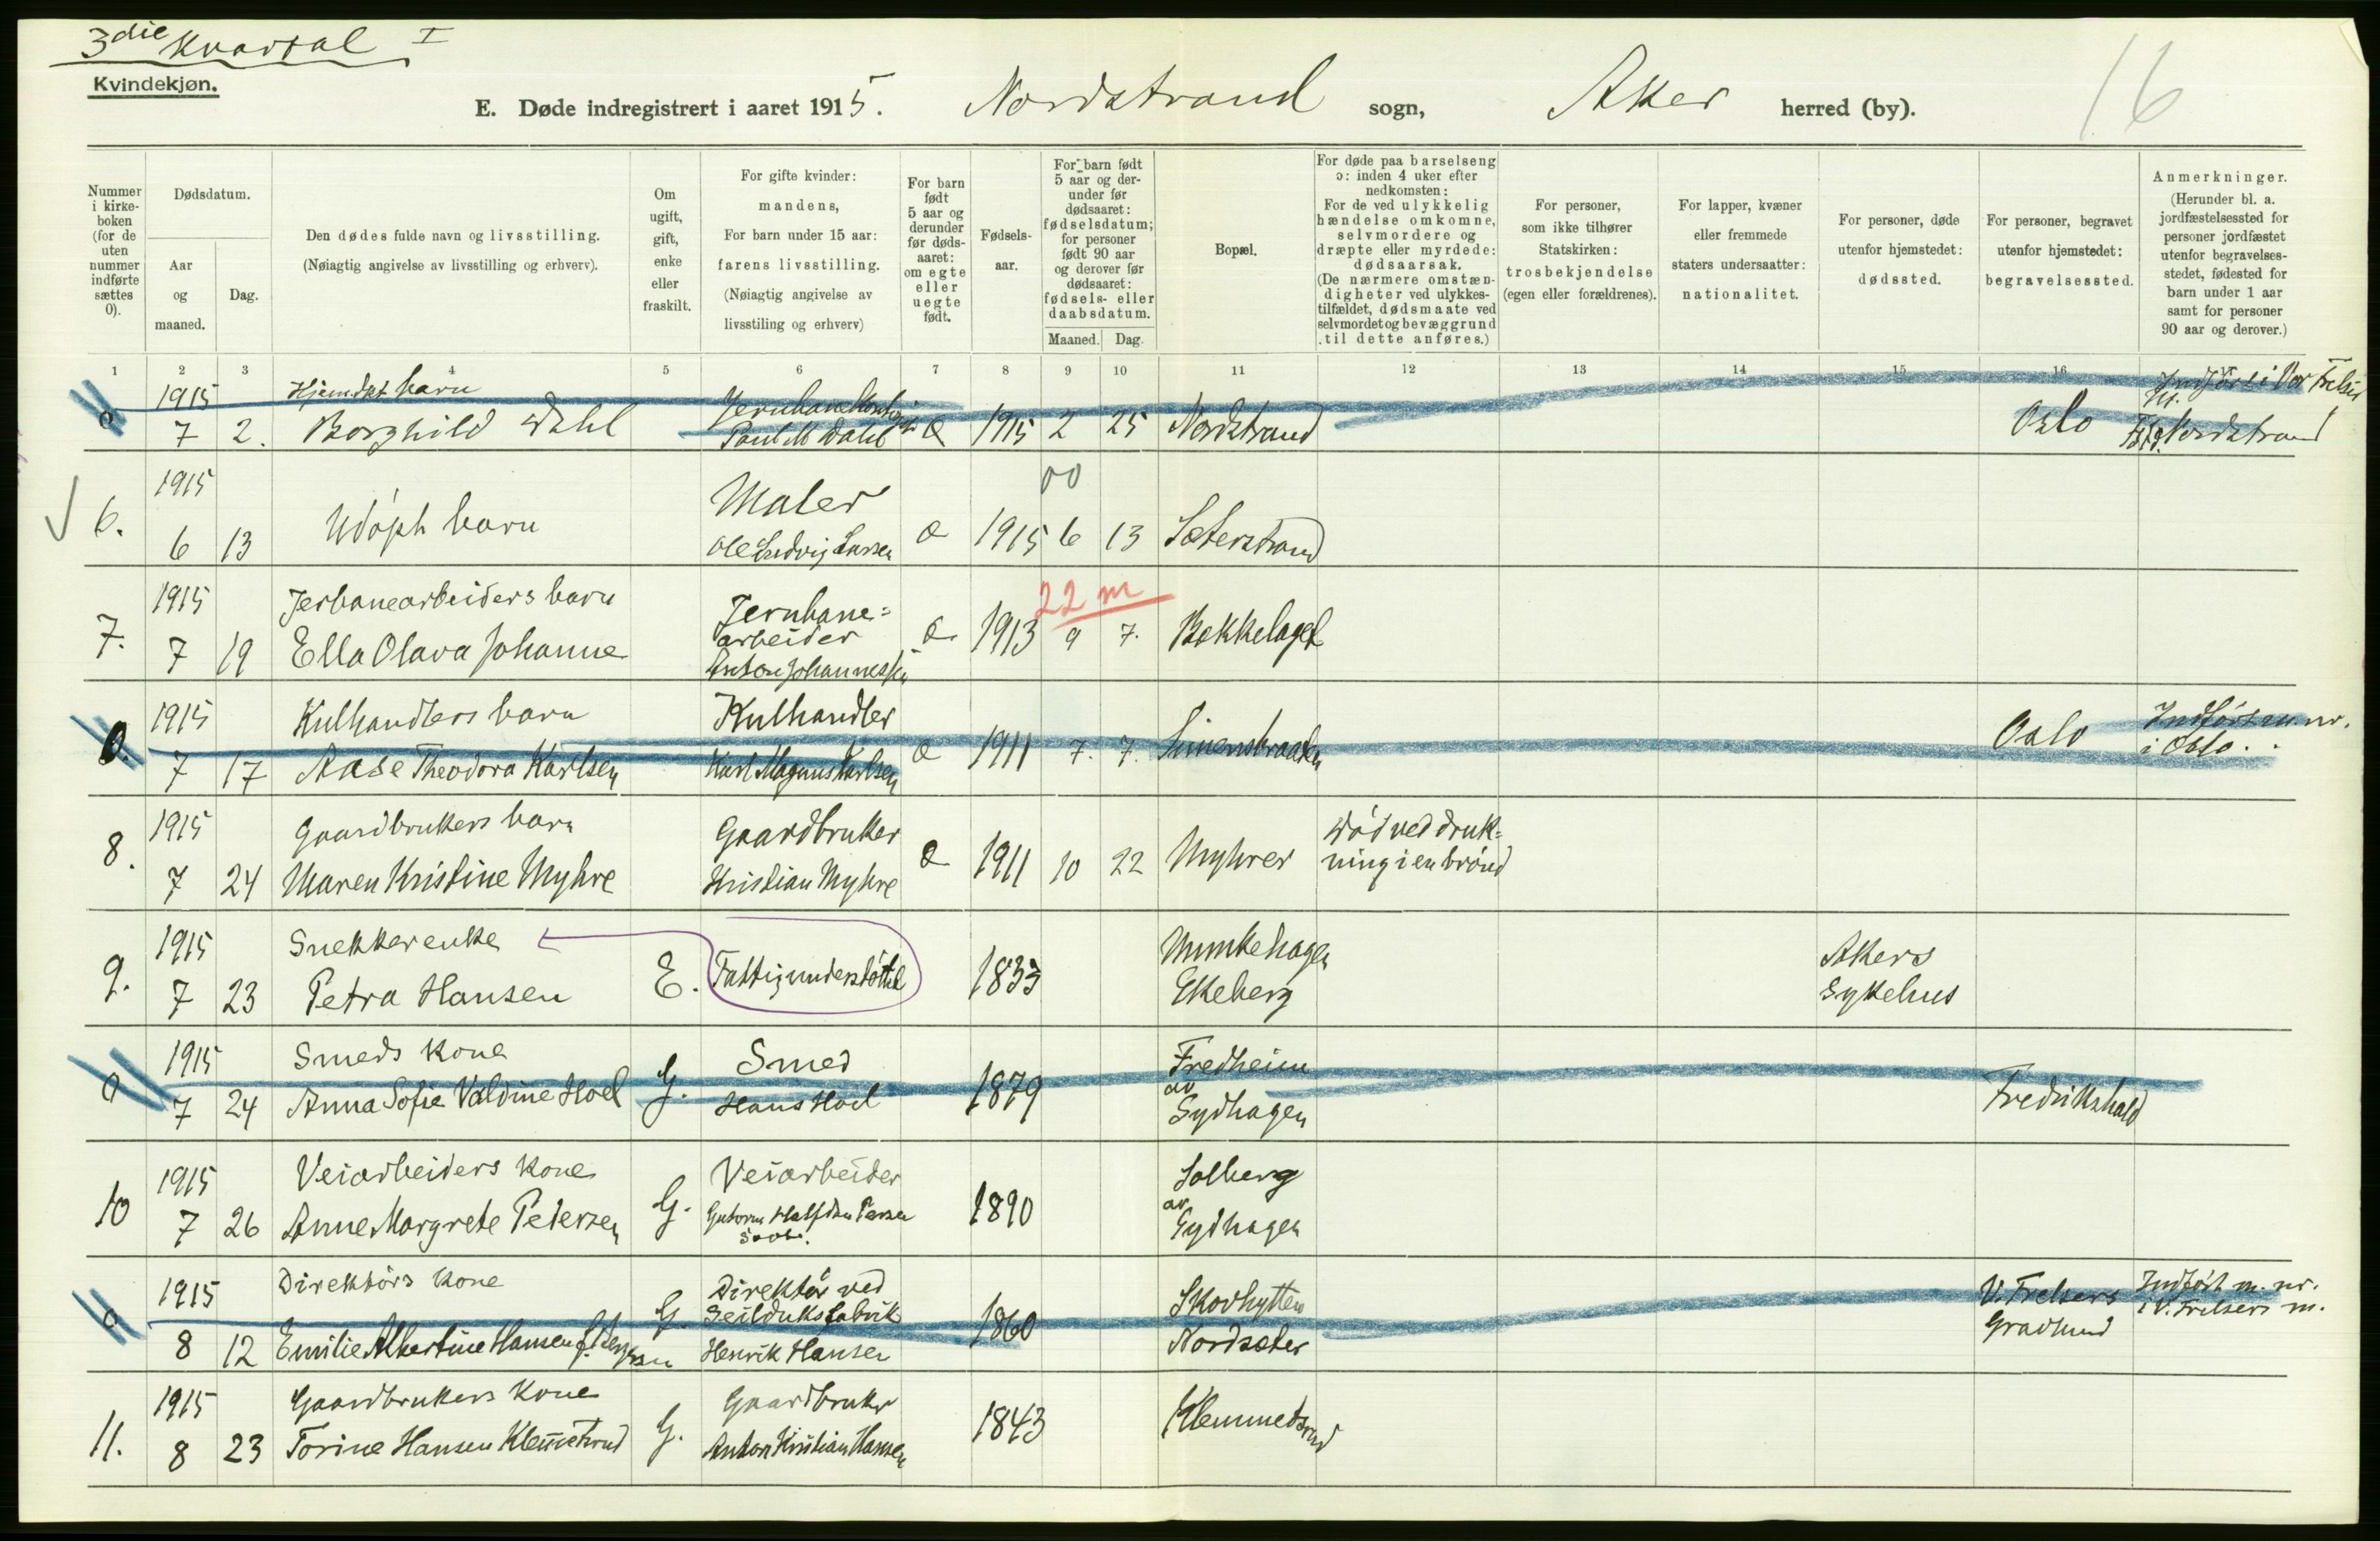 3die Kvartal I
Kvindekjøn.
E. Døde indregistrert i aaret 1915. Nordstrand sogn, Aker herred (by).
16
Nummer i kirkeboken (for de uten nummer indførte sættes 0).
Dødsdatum.
Aar og maaned.
Dag.
Den dødes fulde navn og livsstilling.
(Nøiagtig angivelse av livsstilling og erhverv).
Om ugift, gift, enke eller fraskilt.
For gifte kvinder: mandens,
For barn under 15 aar: farens livsstilling.
(Nøiagtig angivelse av livsstiling og erhverv)
For barn født 5 aar og derunder før dødsaaret: om egte eller uegte født.
Fødselsaar.
For barn født 5 aar og derunder før dødsaaret: fødselsdatum; for personer født 90 aar og derover før dødsaaret: fødsels- eller daabsdatum.
Maaned. Dag.
Bopæl.
For døde paa barselseng ɔ: inden 4 uker efter nedkomsten:
For de ved ulykkelig hændelse omkomne, selvmordere og dræpte eller myrdede: dødsaarsak.
(De nærmere omstændigheter ved ulykkestilfældet, dødsmaate ved selvmordet og bevæggrund til dette anføres.)
For personer, som ikke tilhører Statskirken: trosbekjendelse (egen eller forældrenes).
For lapper, kvæner eller fremmede staters undersaatter: nationalitet.
For personer, døde utenfor hjemstedet: dødssted.
For personer, begravet utenfor hjemstedet: begravelsessted.
Anmerkninger.
(Herunder bl. a. jordfæstelsessted for personer jordfæstet utenfor begravelsesstedet, fødested for barn under 1 aar samt for personer 90 aar og derover.)
1 2 3 4 5 6 7 8 9 10 11 12 13 14 15 16
0 1915 Hjemdøt barn Indført i Vor Frelser
7 2. Borghild Dahl Paul M Dahl æ 1915 2 25 Nordstrand Oslo Nordstrand
6. 1915 Udøpt barn Maler 00
6 13 Ole Ludvig Larsen æ 1915 6 13 Sæterstrand
7. 1915 Jerbanearbeiders barn Jernbane= 22 m
7 19 Ella Olava Johanne arbeider æ 1913 9 7. Bækkelaget
Anton Johannessen
0. 1915 Kulhandlers barn Kulhandler Oslo Indført m. nr.
7 17 Aase Theodora Karlsen Karl Magnus Karlsen æ 1911 7. 7. Simensbraaten i Oslo.
8. 1915 Gaardbrukers barn Gaardbruker Død ved druk=
7 24 Maren Kristine Myhre Kristian Myhre æ 1911 10 22 Myhrer ning i en brønd
9. 1915 Snekkerenke E. Fattigunderstøttet 1833 Munkehagen Akers
7 23 Petra Hansen Ekeberg Sykehus
0 1915 Smeds kone G. Smed 1879 Fredheim
7 24 Anna Sofie Valdine Hoel Hans Hoel av Sydhagen Fredrikshald
10 1915 Veiarbeiders kone G. Veiarbeider 1890 Solberg
7 26 Anne Margrete Petersen Guttorm Halfdan av Sydhagen
0 1915 Direktørs kone G. Direktør ved Seildugsfabrik 1860 Skovhytten V. Frelsers Indført m. nr.
8 12 Emilie Albertine Hansen Henrik Hansen Nordsæter Gravlund i V. Frelsers m.
11. 1915 Gaardbrukers kone G. Gaardbruker 1843 Klemmetsrud
8 23 Torine Hansen Klemetsrud Anton Kristian Hansen